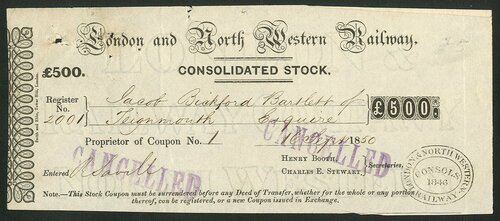 London and North Western Railway.
£500. CONSOLIDATED STOCK.
Register No. 2001 Jacob Bickford Bartlett of £500.
Teignmouth Esquire
Proprietor of Coupon No. 1 1850
HENRY BOOTH,
CHARLES E. STEWART, Secretaries.
Entered
CANCELLED
CANCELLED
LONDON & NORTH WESTERN RAILWAY
CONSOLS 1846
Note.—This Stock Coupon must be surrendered before any Deed of Transfer, whether for the whole or any portion
thereof, can be registered, or a new Coupon issued in Exchange.